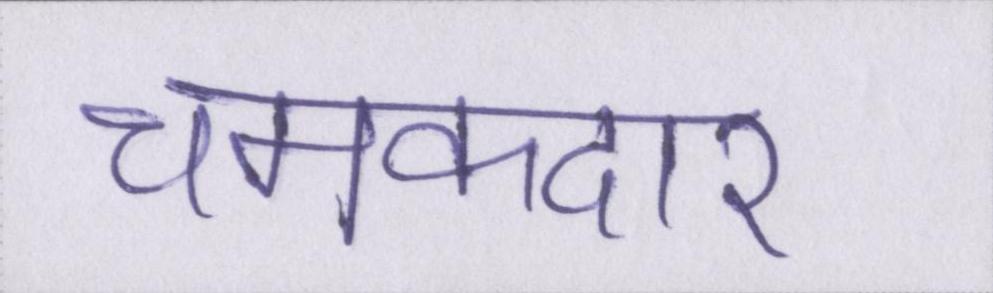 चमकदार